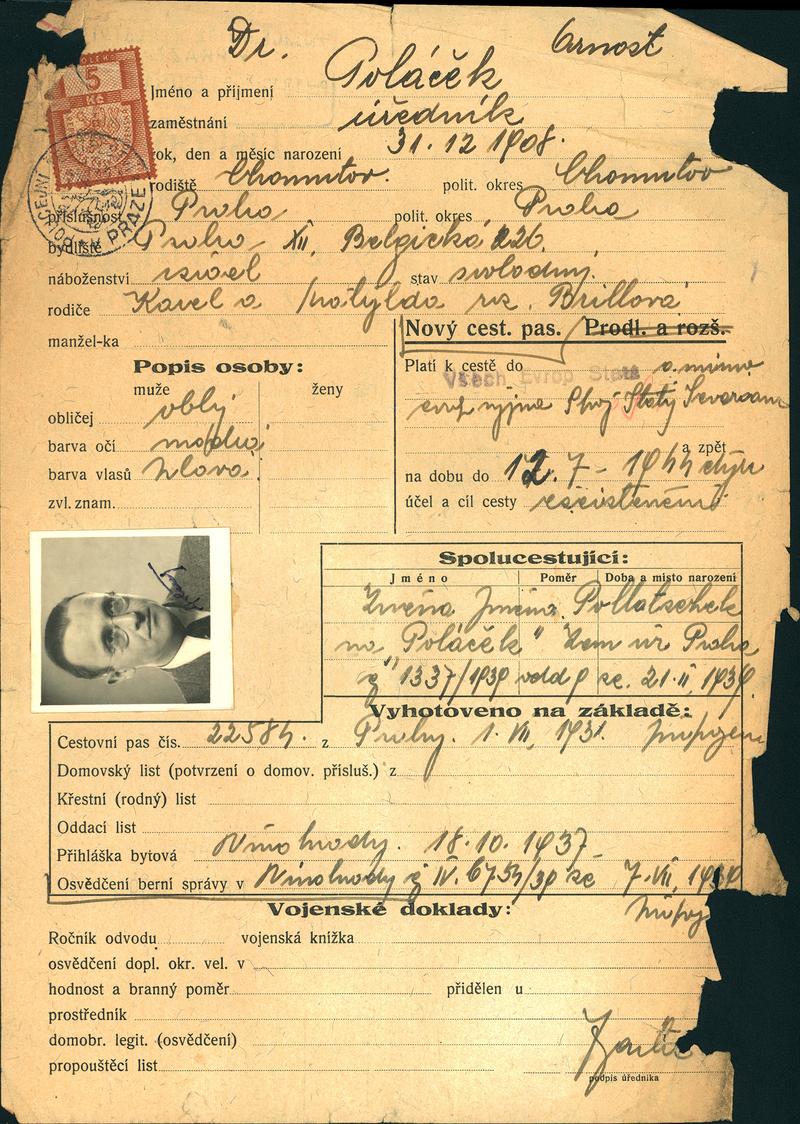 Dr. Arnost
Jméno a příjmení Poláček
zaměstnání úředník
rok, den a měsíc narození 31.12 1908.
rodiště Chomutov. polit. okres Chomutov
příslušnost Praha polit. okres Praha
bydliště Praha XII, Belgická 226.
náboženství israel stav svobodný.
rodiče Karel a Matylda roz. Brillová
manžel-ka
Nový cest. pas. Prodl. a rozš.
Popis osoby:
muže ženy
obličej oblý
barva očí modrá
barva vlasů
zvl. znam.
Platí k cestě do Všech Evrop Států a mimo
evrop
a zpět
na dobu do 12.7-1944
účel a cíl cesty
Spolucestující:
Jméno Poměr Doba a místo narození
Změna jména Pollatschek
na Poláček" Zem úř Praha
1337/1939 21.II.1939
Vyhotoveno na základě:
Cestovní pas čís. 22584. z Prahy. 1.VII, 1931.
Domovský list (potvrzení o domov. přísluš.) z
Křestní (rodný) list
Oddací list
Přihláška bytová Vinohrady. 18.10.1937
Osvědčení berní správy v Vinohrady 7.VII,
Vojenské doklady:
Ročník odvodu vojenská knížka
osvědčení dopl. okr. vel. v
hodnost a branný poměr přidělen u
prostředník
domobr. legit. (osvědčení)
propouštěcí list
podpis úředníka
5
Kč
PRAZE